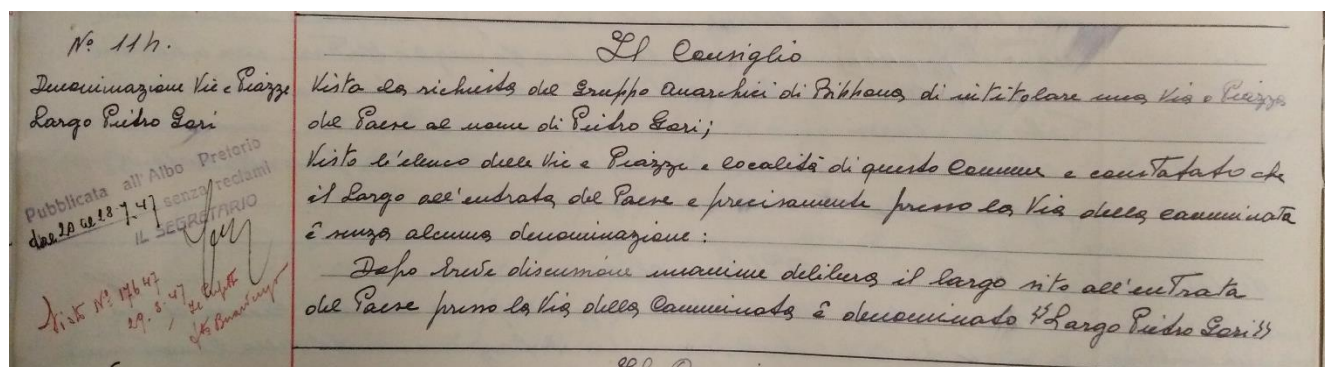 Nº 114.
Denominazione Vie e Piazze
Largo Pietro Gori
Pubblicata all'Albo Pretorio
dal 20 al 28-7-47 senza reclami
IL SEGRETARIO
Visto Nº 17647
29-8-47
Il Consiglio
Vista la richiesta del Gruppo Anarchici di Bibbona di intitolare una Via o Piazza
del Paese al nome di Pietro Gori;
Visto l'elenco delle Vie e Piazze e località di questo Comune e constatato che
il Largo all'entrata del Paese e precisamente presso la Via della Camminata
è senza alcuna denominazione:
Dopo breve discussione unanime delibera il largo sito all'entrata
del Paese presso la Via della Camminata è denominato "Largo Pietro Gori"